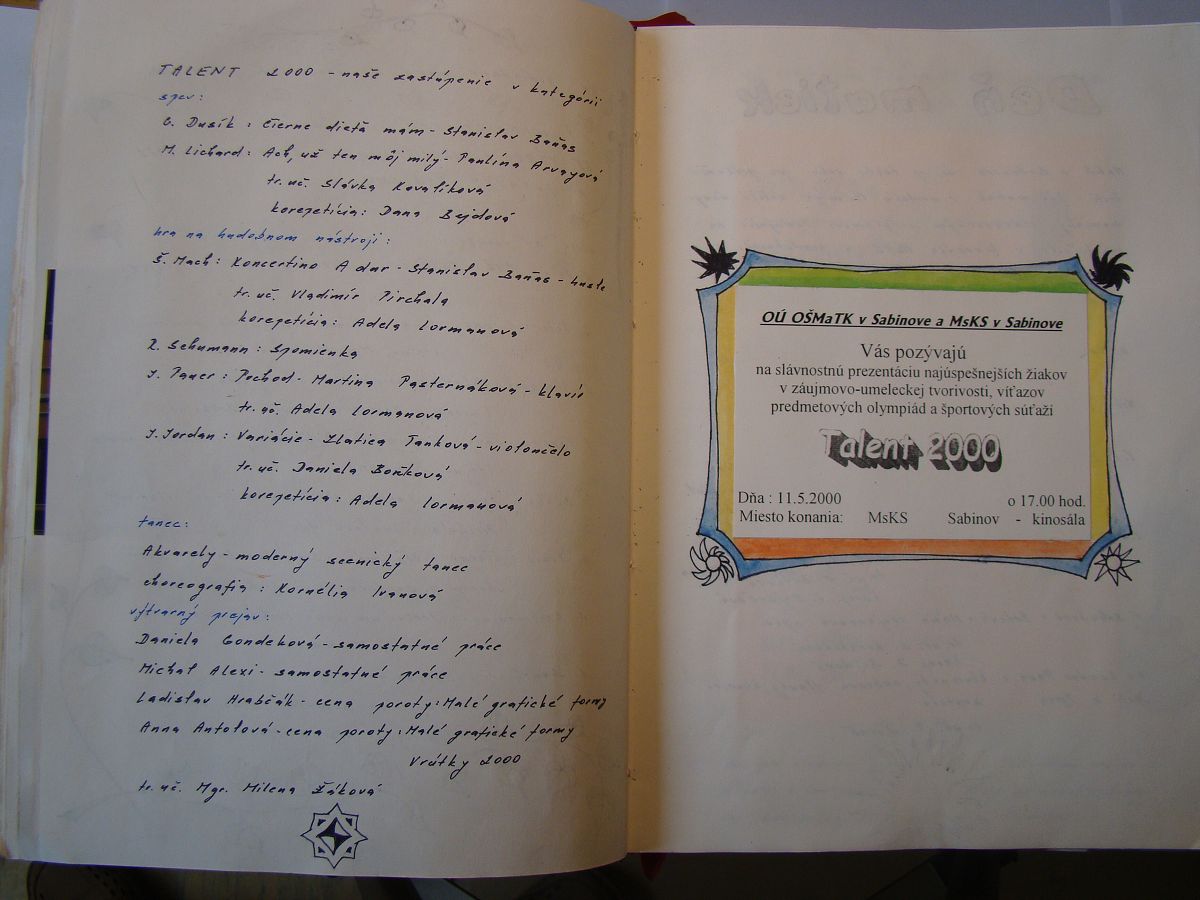 TALENT 2000 - naše zastúpenie v kategórii
spev:
G. Dusík: Čierne dieťa mám - Stanislav Baňas
M. Lichard: Ach, už ten môj milý - Paulína Arvayová
tr. uč. Slávka Kovalíková
korepetícia: Dana Bejdová
hra na hudobnom nástroji:
Š. Mach: Koncertino A dur - Stanislav Baňas - husle
tr. uč. Vladimír Pirchala
korepetícia: Adela Lormanová
R. Schumann: Spomienka
J. Pauer: Pochod - Martina Pasternáková - klavír
tr. uč. Adela Lormanová
J. Jordan: Variácie - Zlatica Tanková - violončelo
tr. uč. Daniela Boržková
korepetícia: Adela Lormanová
tanec:
Akvarely - moderný scenický tanec
choreografia: Kornélia Ivanová
výtvarný prejav:
Daniela Gondeková - samostatné práce
Michal Alexi - samostatné práce
Ladislav Hrabčák - cena poroty: Malé grafické formy
Anna Antolová - cena poroty: Malé grafické formy
Vrútky 2000
tr. uč. Mgr. Milena Žáková
OÚ OŠMaTK v Sabinove a MsKS v Sabinove
Vás pozývajú
na slávnostnú prezentáciu najúspešnejších žiakov
v záujmovo-umeleckej tvorivosti, víťazov
predmetových olympiád a športových súťaží
Talent 2000
Dňa : 11.5.2000 o 17.00 hod.
Miesto konania: MsKS Sabinov - kinosála